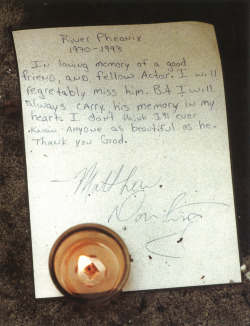 River Pheonix
1970-1993
In loving memory of a good
friend, and fellow Actor. I will
regretably miss him. But I will
Always carry his memory in my
heart. I don't think I'll ever
know Anyone as beautiful as he.
Thank you Good.
Matthew